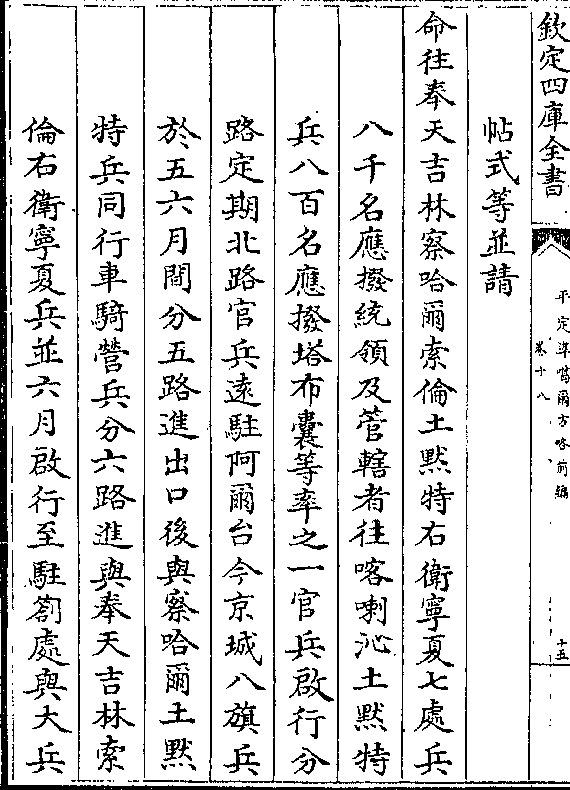 欽定四庫全書
平定準噶爾方略前編
卷十八
十五
帖式等並請
命往奉天吉林察哈爾索倫土默特右衛寧夏七處兵
八千名應撥統領及管轄者往喀喇沁土默特
兵八百名應撥塔布囊等率之一官兵啟行分
路定期北路官兵遠駐阿爾台今京城八旗兵
於五六月間分五路進出口後與察哈爾土默
特兵同行車騎營兵分六路進與奉天吉林索
倫右衛寧夏兵並六月啟行至駐劄處與大兵